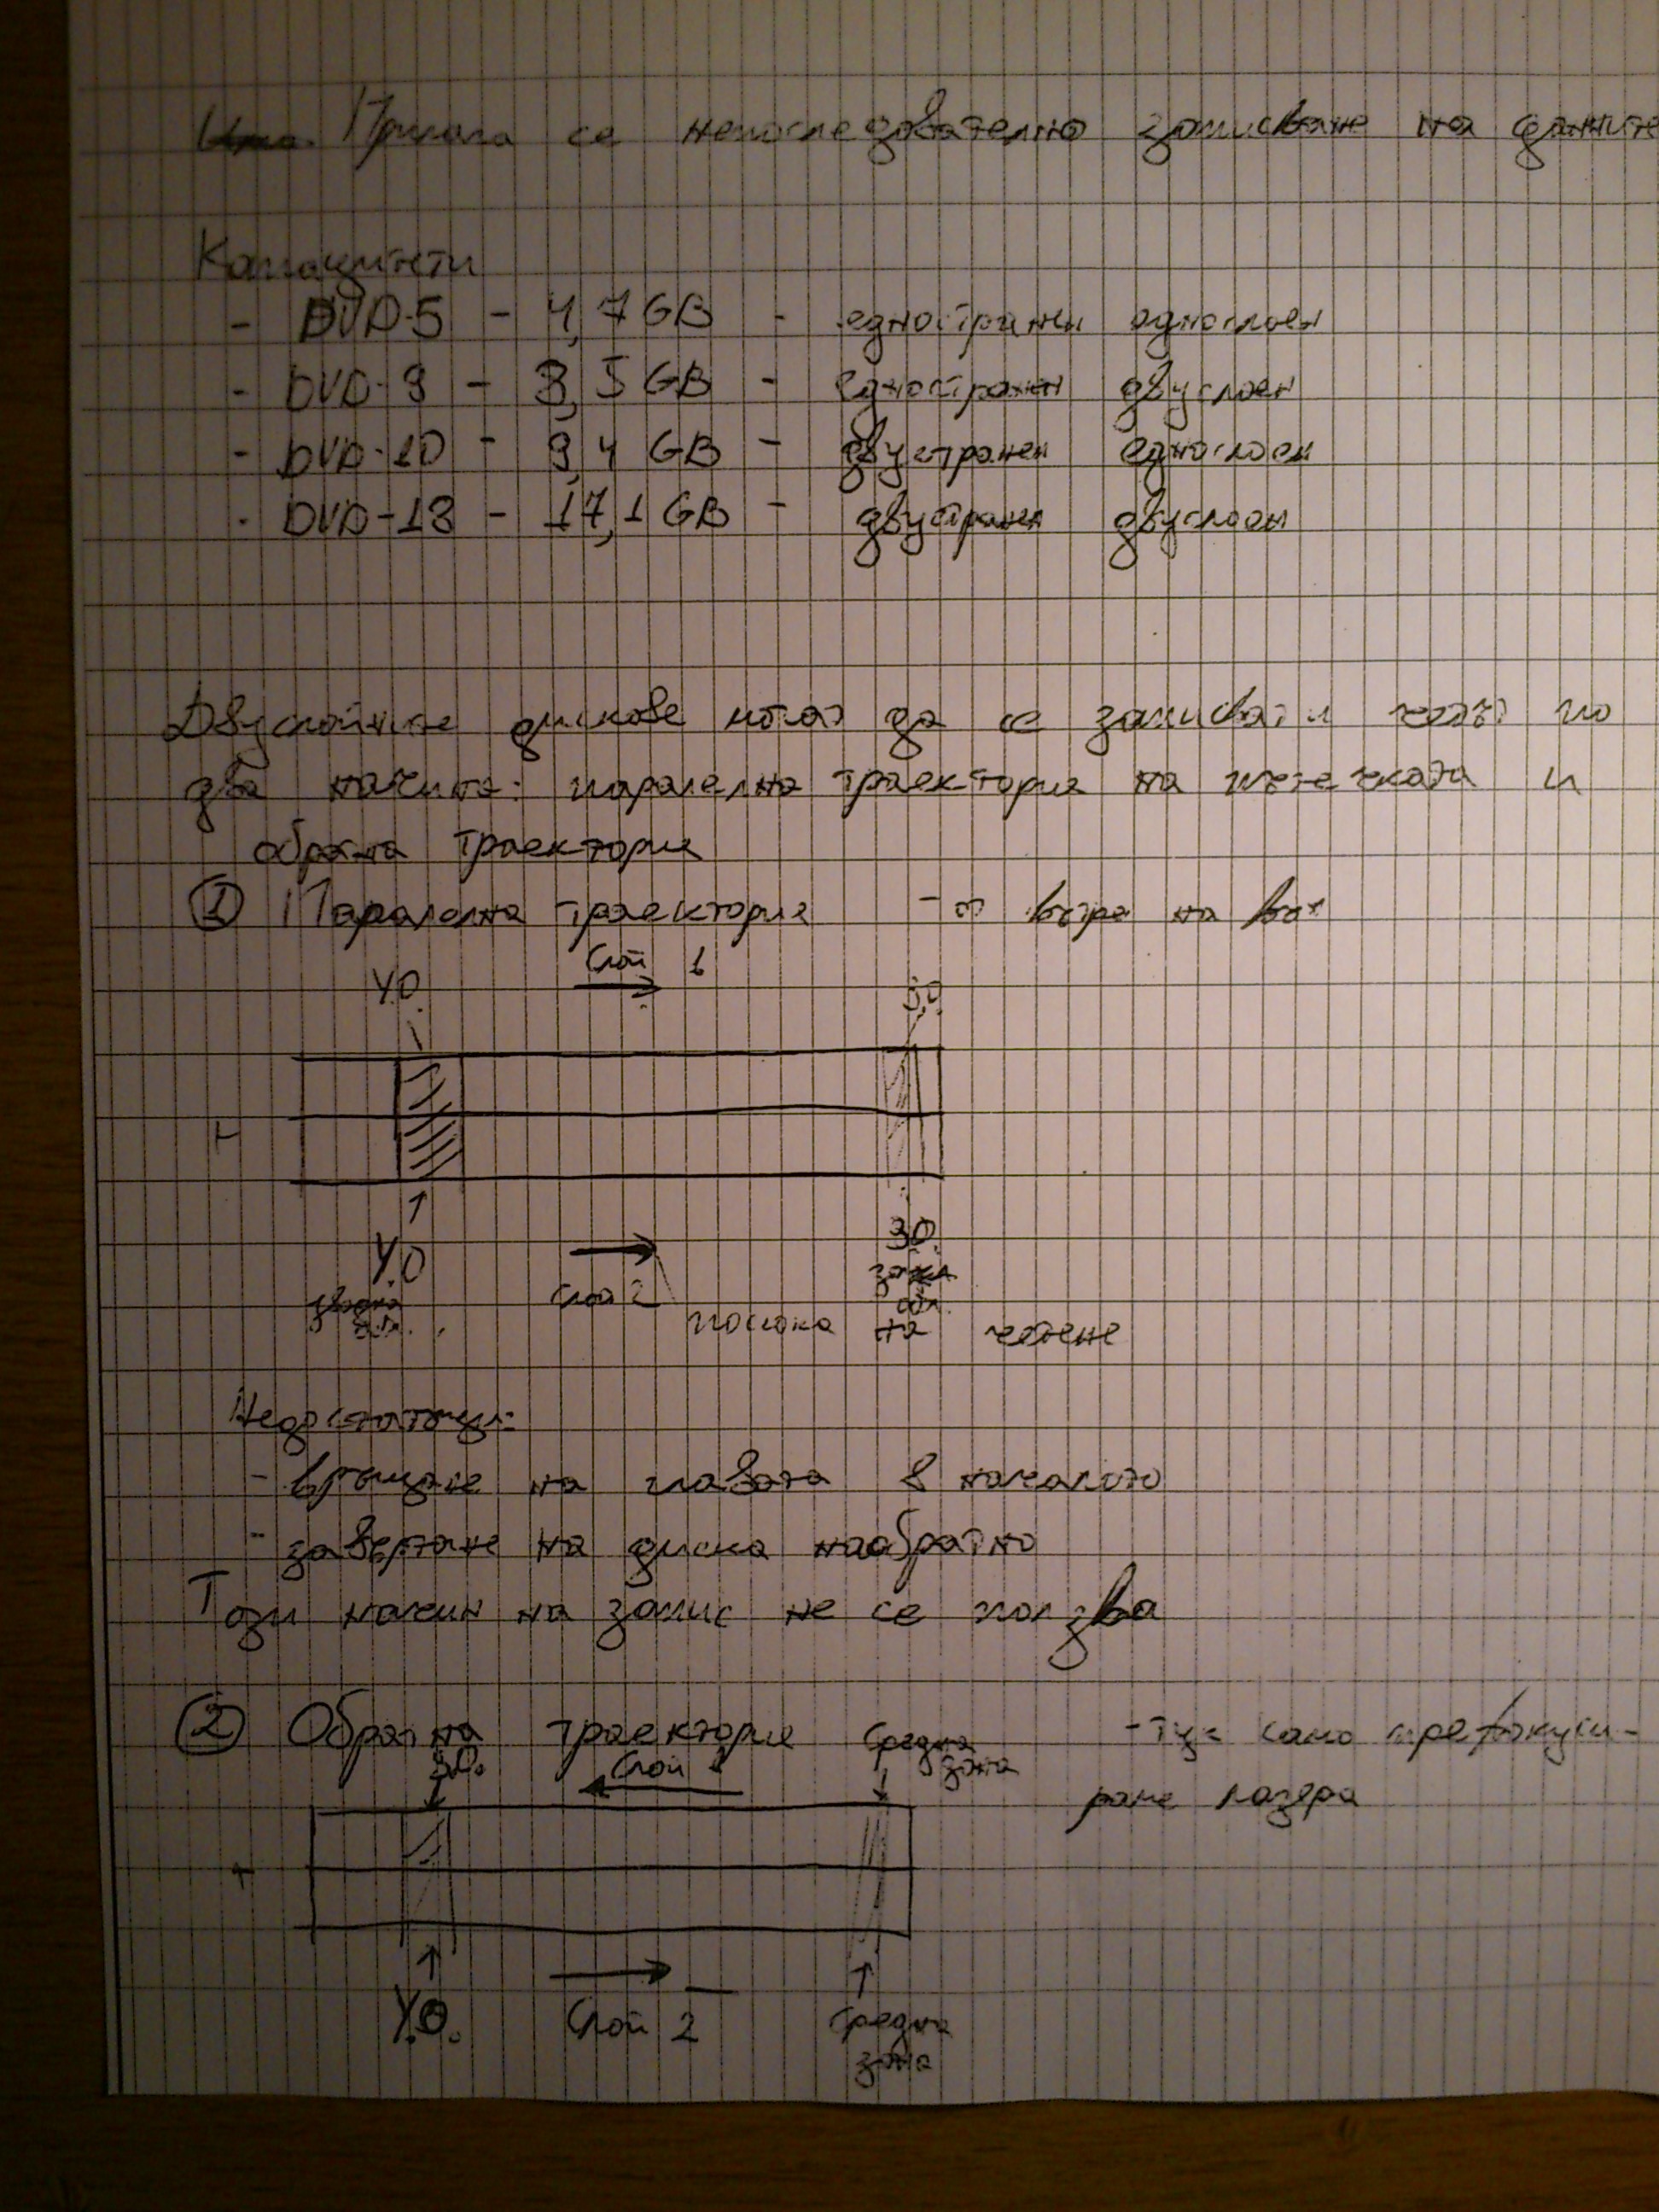 Прилага се непоследователно записване на данните
Капацитети
- DVD-5 - 4,7 GB - едностранен еднослоен
- DVD-9 - 8,5 GB - едностранен двуслоен
- DVD-10 - 9,4 GB - двустранен еднослоен
- DVD-18 - 17,1 GB - двустранен двуслоен
Двуслойните дискове могат да се записват и четат по
два начина: паралелна траектория на пътечката и
обратна траектория
① Паралелна траектория - от вътре на вън
У.О. Слой 1 З.О.
У.О Слой 2 З.О.
посока на четене
Недостатъци:
- връщане на главата в началото
- завъртане на диска наобратно
Този начин на запис не се ползва
② Обратна траектория - тук само префокуси-
ране лазера
З.О. Слой 1 Средна зона
У.О. Слой 2 Средна
зона